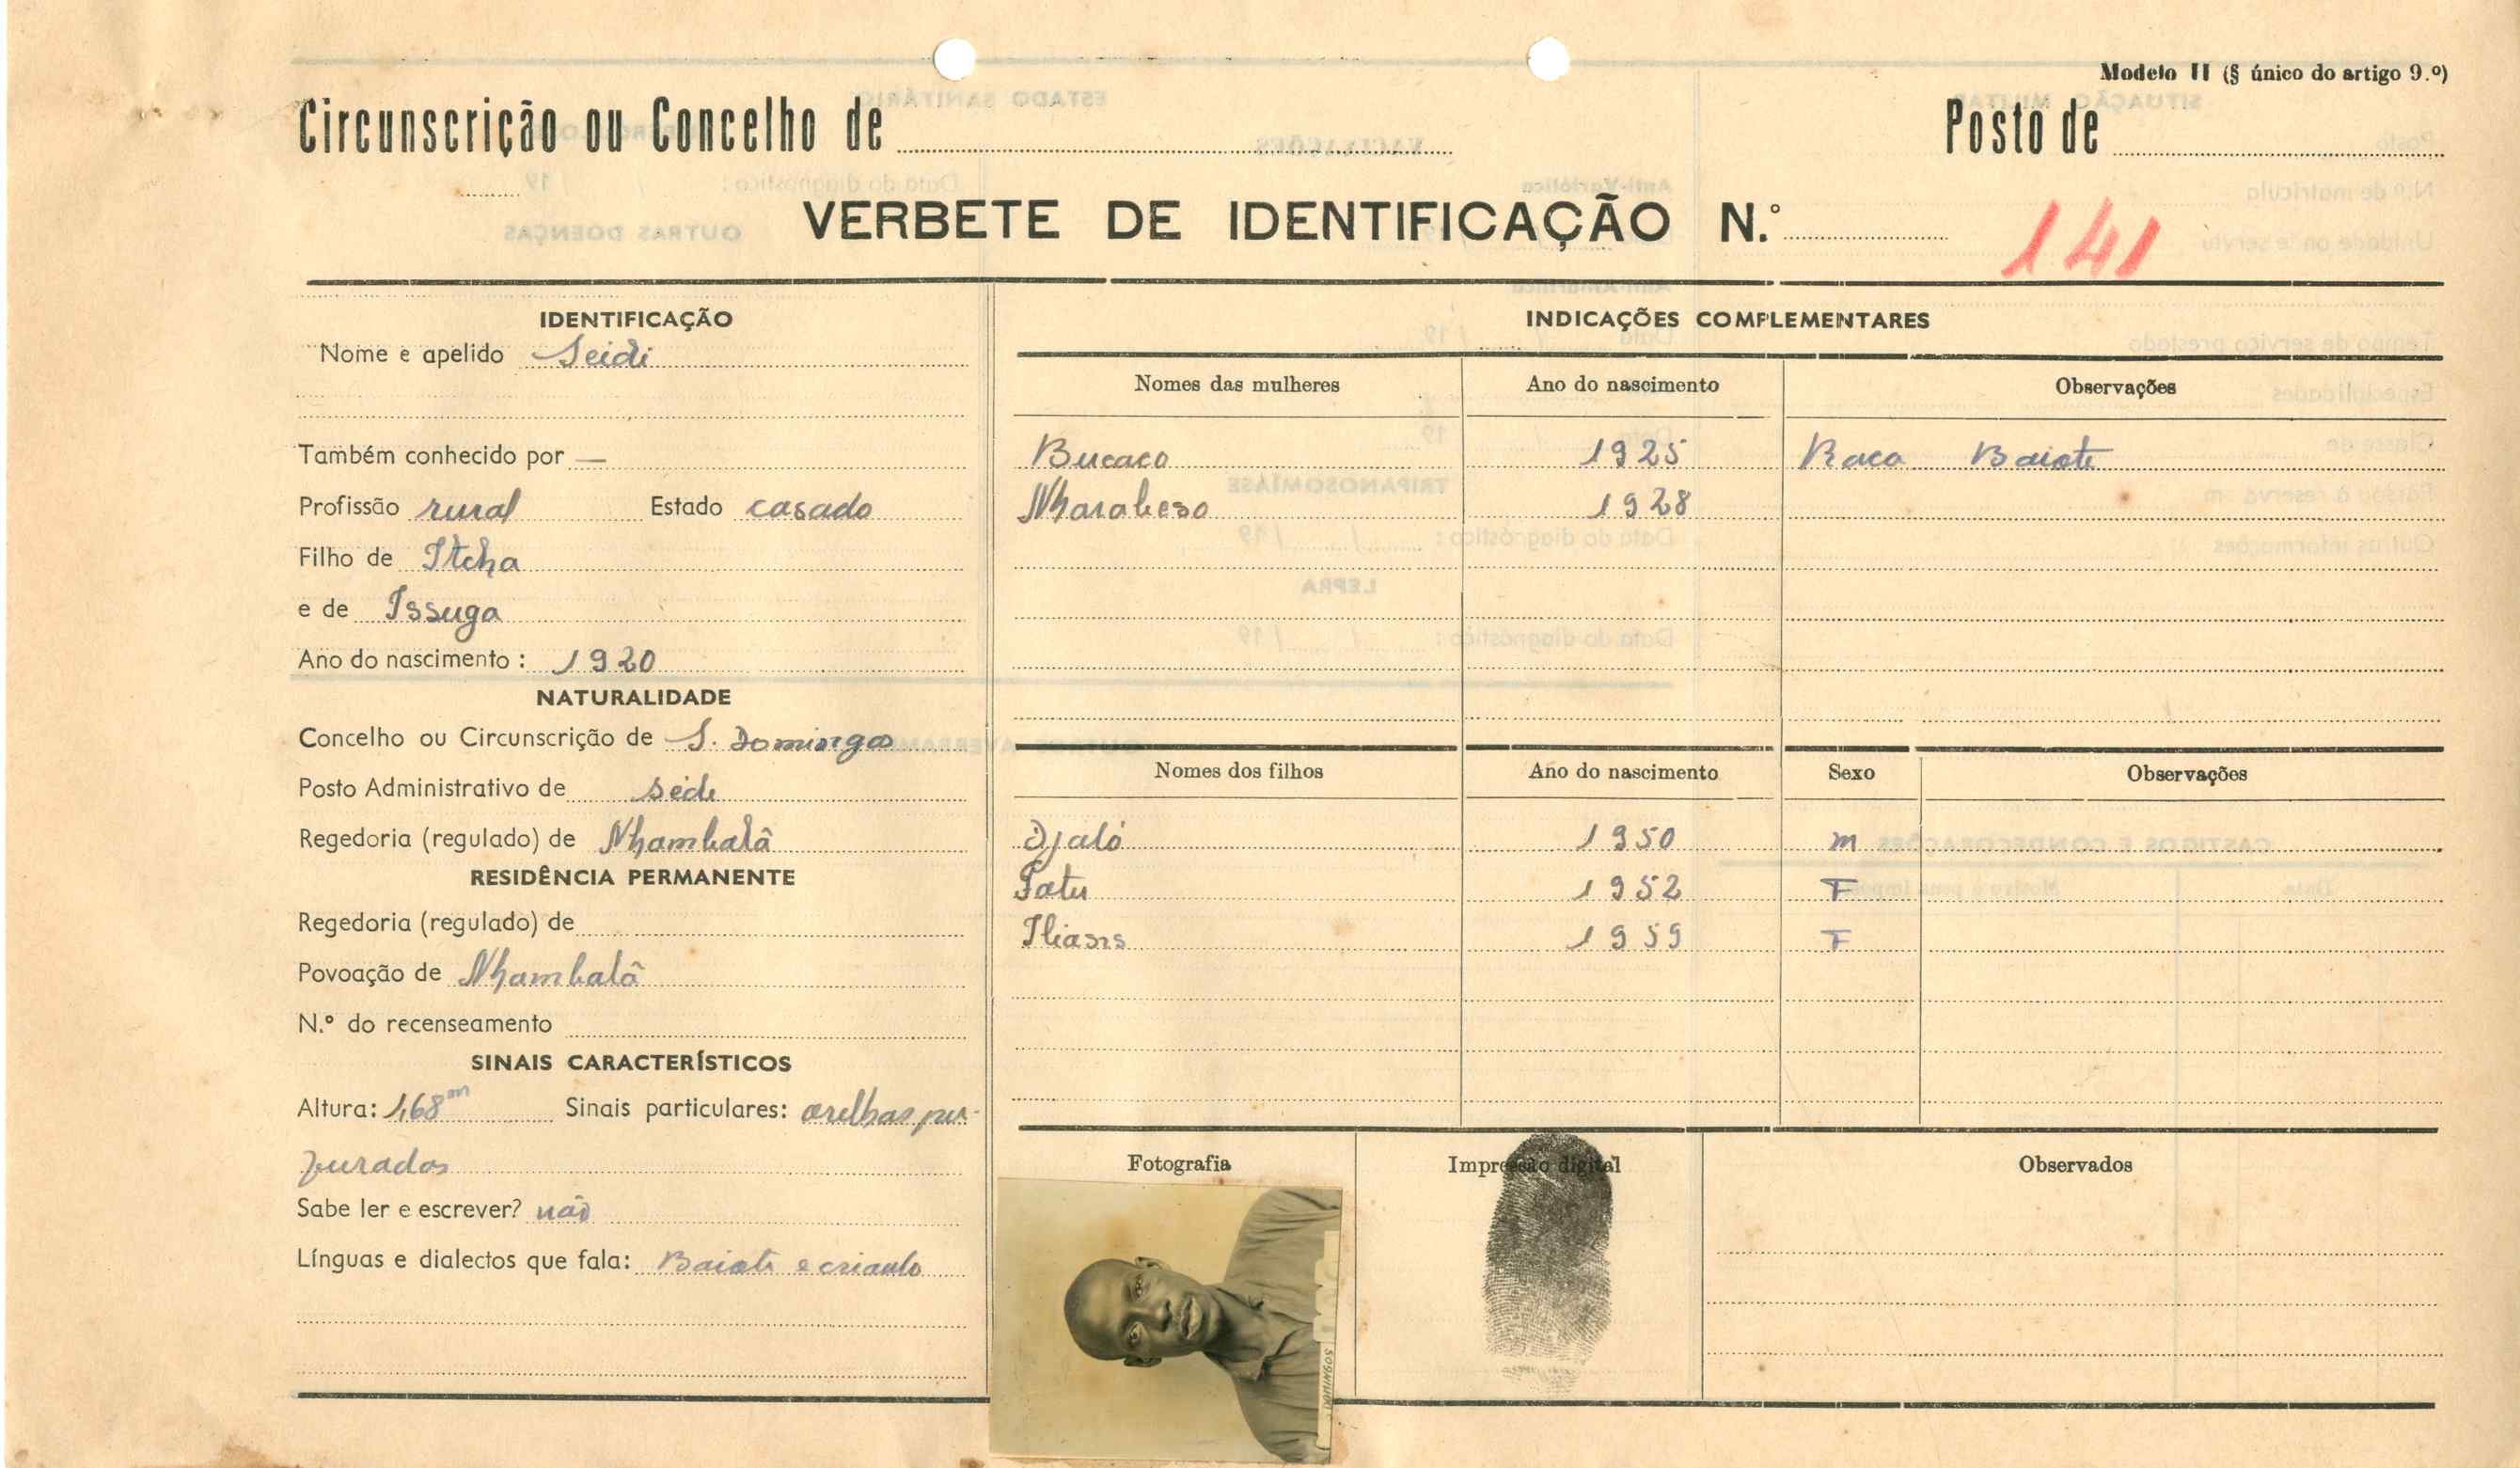 Modelo II (§ único do artigo 9.º)
Circunscrição ou Concelho de
Posto de
VERBETE DE IDENTIFICAÇÃO N.º
141
IDENTIFICAÇÃO
Nome e apelido Seidi
Também conhecido por —
Profissão rural Estado casado
Filho de Itcha
e de Issuga
Ano do nascimento: 1920
NATURALIDADE
Concelho ou Circunscrição de S. Domingos
Posto Administrativo de sede
Regedoria (regulado) de Nhambalã
RESIDÊNCIA PERMANENTE
Regedoria (regulado) de
Povoação de Nhambalã
N.º do recenseamento
SINAIS CARACTERÍSTICOS
Altura: 1,68m Sinais particulares: orelhas per-
furadas
Sabe ler e escrever? não
Línguas e dialectos que fala: Baiote e crioulo
INDICAÇÕES COMPLEMENTARES
Nomes das mulheres Ano do nascimento Observações
Bucaco 1925 Raca Baiote
1928
Nomes dos filhos Ano do nascimento Sexo Observações
Djaló 1950 m
Fatu 1952 F
1959 F
Fotografia Impressão digital Observados
DOMINGOS